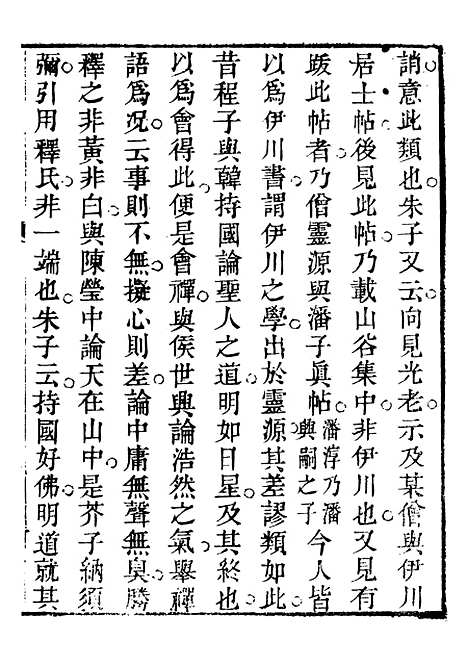 誚意此類也朱子又云向見光老示及某僧與伊川
居士帖後見此帖乃載山谷集中非伊川也又見有
䟦此帖者乃僧靈源與潘子眞帖潘淳乃潘興嗣之子今人皆
以爲伊川書謂伊川之學出於靈源其差謬類如此
昔程子與韓持國論聖人之道明如日星及其終也
以爲會得此便是會禪與侯世興論浩然之氣舉禪
語爲况云事則不無擬心則差論中庸無聲無臭勝
釋之非黃非白與陳瑩中論天在山中是芥子納須
彌引用釋氏非一端也朱子云持國好佛明道就其